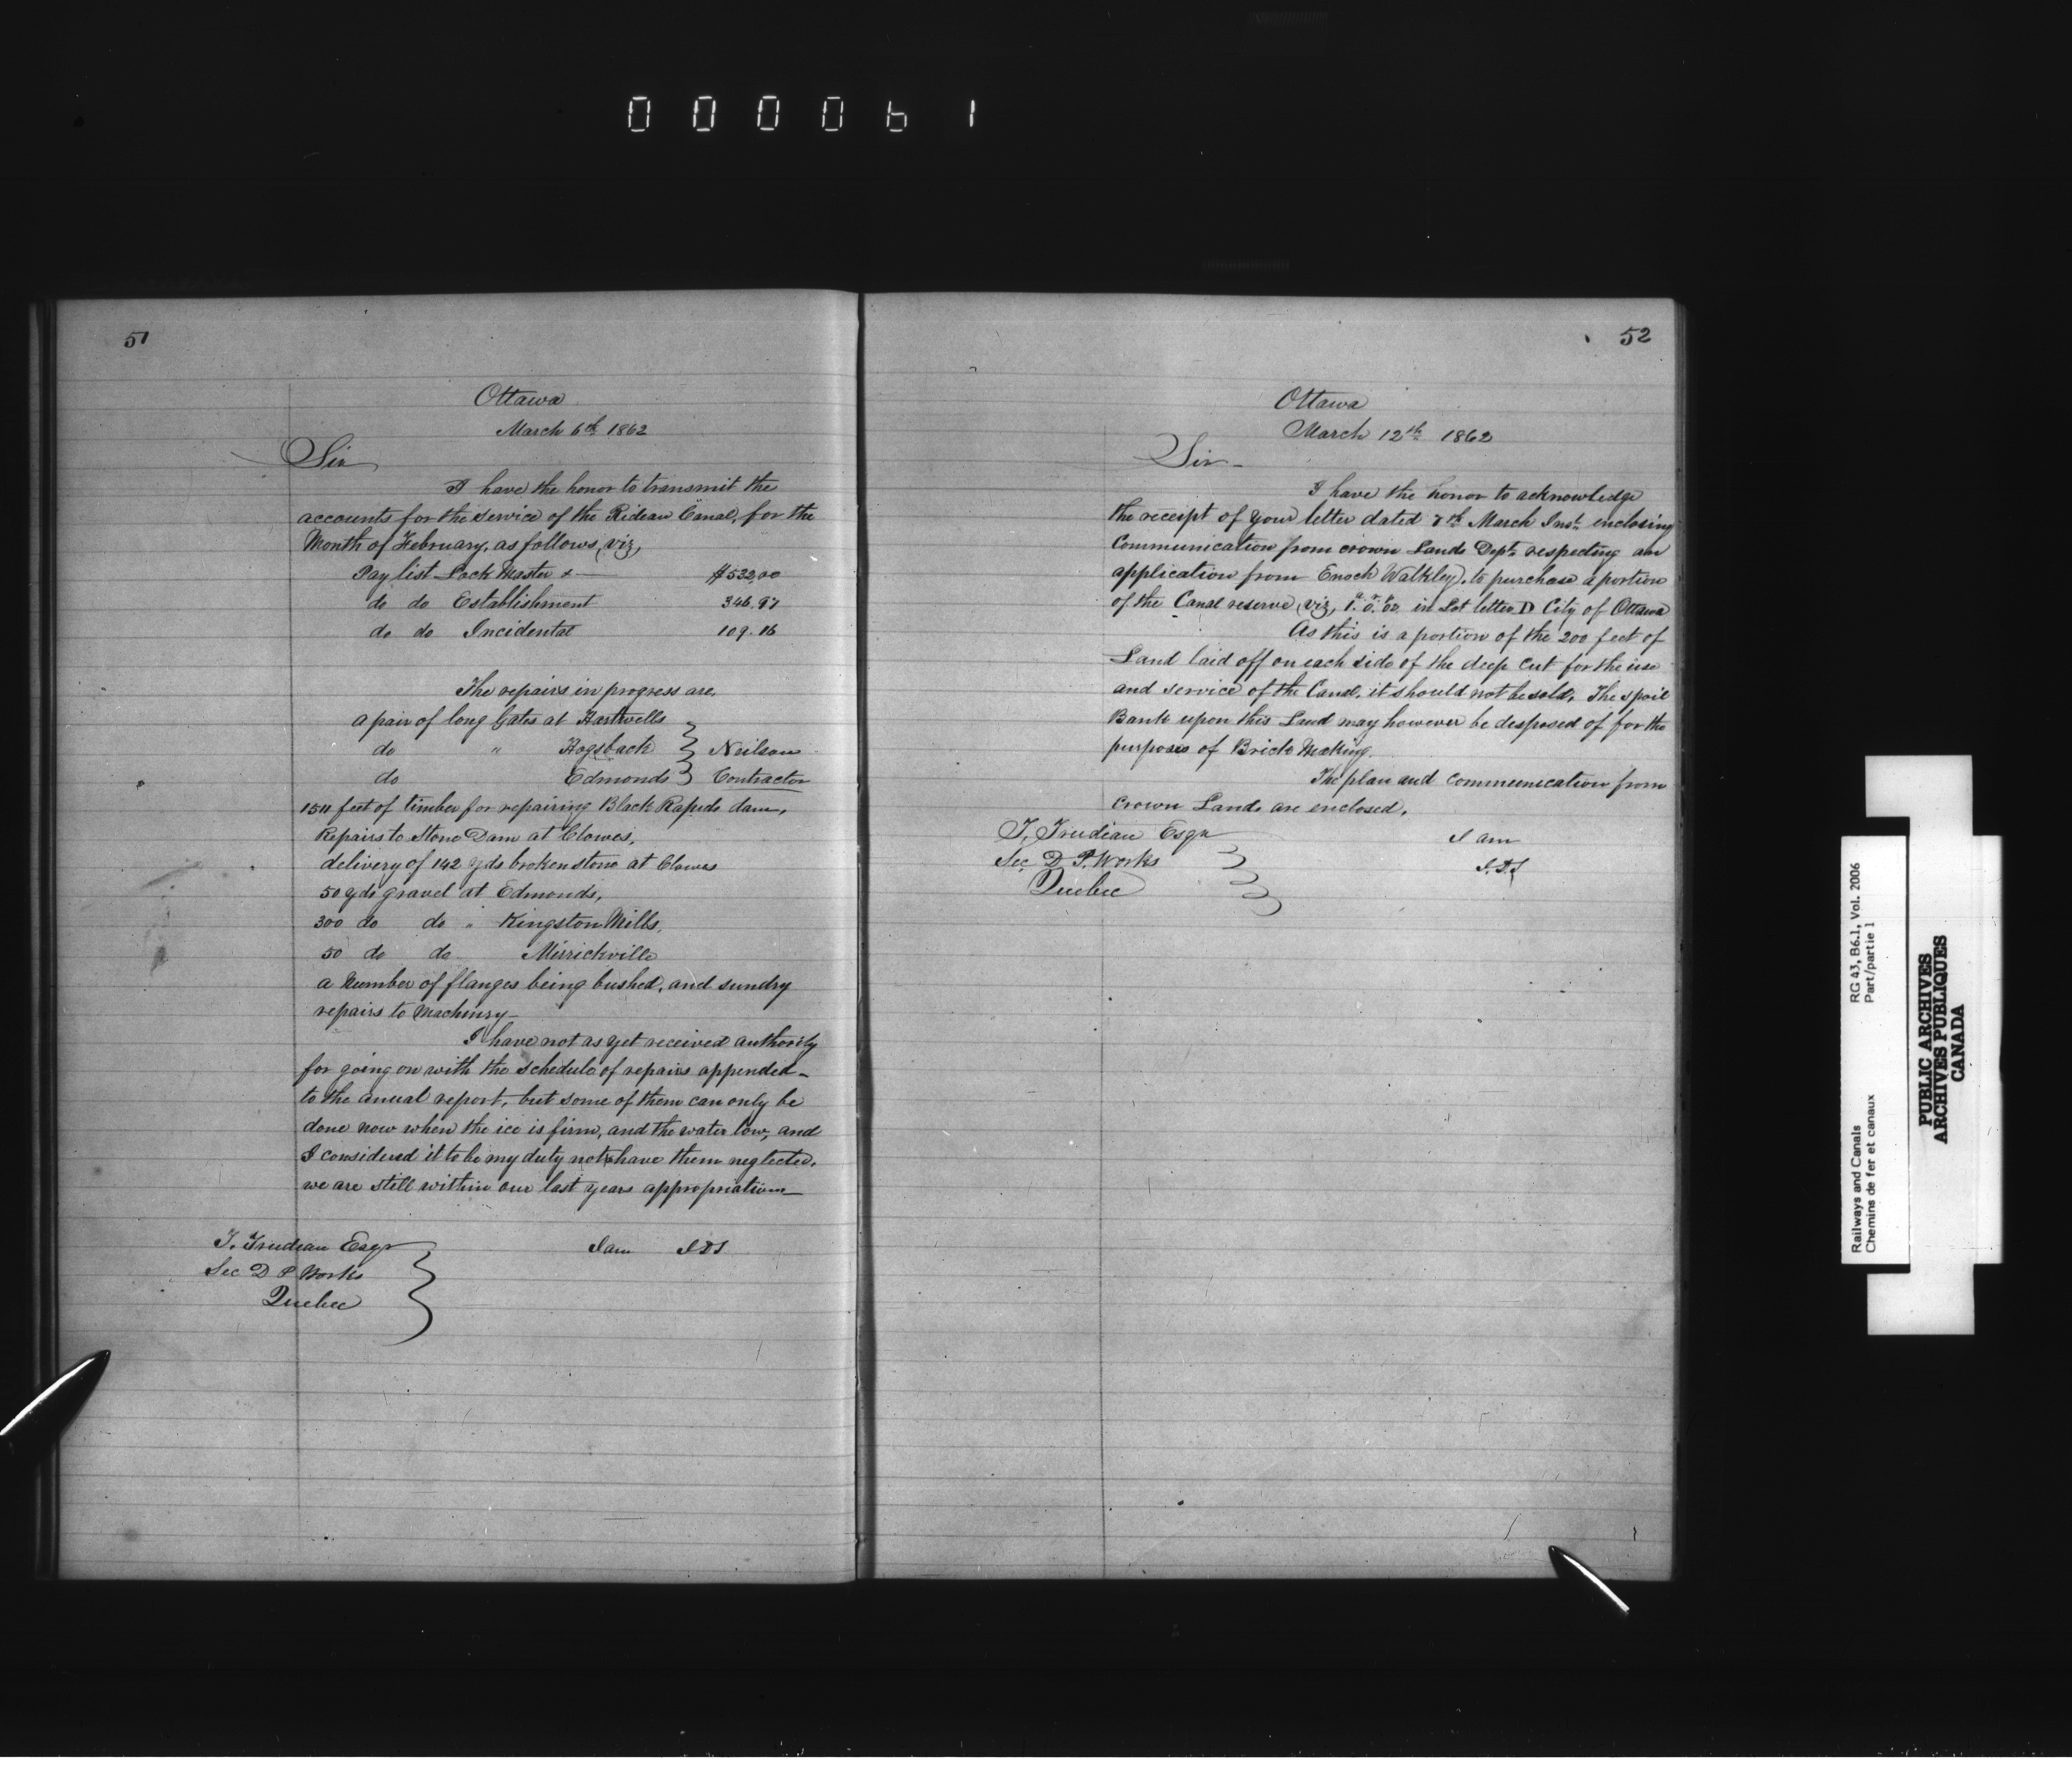 000061
51
Ottawa
March 6th 1862
Sir
I have the honor to transmit the
accounts for the service of the Rideau Canal, for the
Month of February, as follows, viz,
Pay list Lock Master & — $532,00
do do Establishment 346.97
do do Incidental 109.16
The repairs in progress are,
a pair of long Gates at Hartwells
do " Hogsback } Neilson
do Edmonds } Contractor
1511 feet of timber for repairing Black Rapids dam,
Repairs to Stone Dam at Clowes,
delivery of 142 yds broken stone at Clowes
50 yds gravel at Edmonds,
300 do do " Kingston Mills,
50 do do Mirrickville
a Number of flanges being bushed, and sundry
repairs to Machinry—
I have not as yet received authority
for going on with the schedule of repairs appended—
to the anual report, but some of them can only be
done now when the ice is firm, and the water low, and
I considered it to be my duty not to have them neglected.
we are still within our last years appropriation—
I am I.D.S
T. Trudeau Esqr
Sec D P Works
Quebec
52
Ottawa
March 12th 1862
Sir—
I have the honor to acknowledge
the receipt of your letter dated 7th March Inst. enclosing
Communication from crown Lands Dept. respecting an
application from Enoch Walkley, to purchase a portion
of the Canal reserve, viz, in Lot letter D City of Ottawa
As this is a portion of the 200 feet of
Land laid off on each side of the deep Cut for the use
and service of the Canal, it should not be sold. The spoil
Bank upon this Land may however be desposed of for the
purposes of Brick Making.
The plan and communication from
Crown Lands are enclosed.
T. Trudeau Esqr I am
Sec D P. Works I.D.S
Quebec
Railways and Canals RG 43, B6.1, Vol. 2006
Chemins de fer et canaux Part/partie 1
PUBLIC ARCHIVES
ARCHIVES PUBLIQUES
CANADA